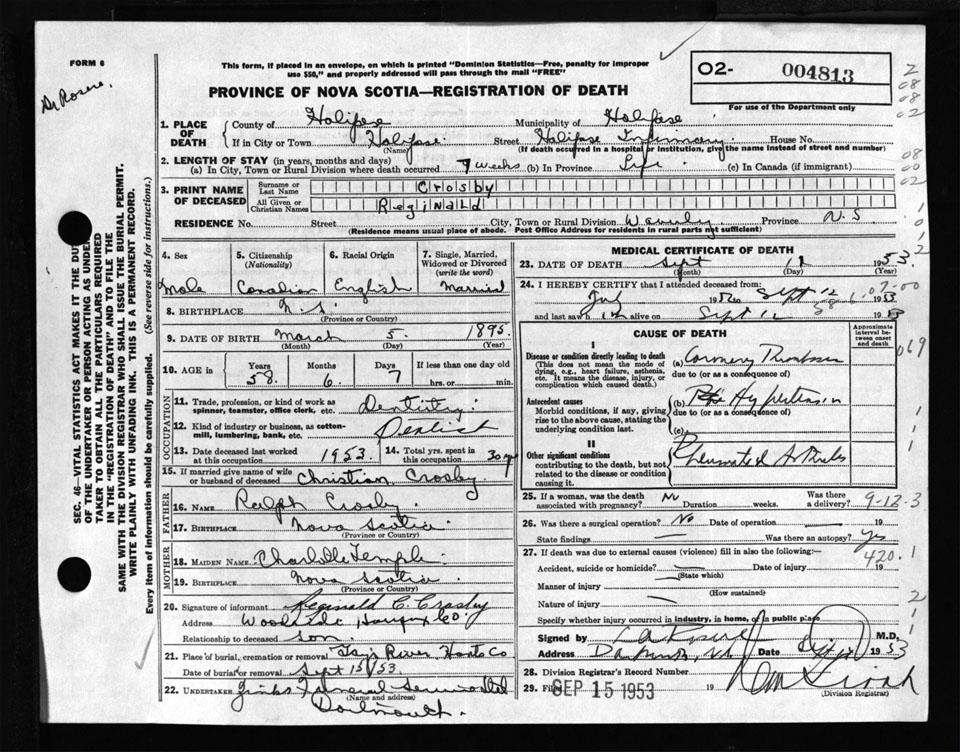 FORM 6
This form, if placed in an envelope, on which is printed "Dominion Statistics—Free, penalty for improper
use $50," and properly addressed will pass through the mail "FREE"
02- 004813
For use of the Department only
PROVINCE OF NOVA SCOTIA—REGISTRATION OF DEATH
1. PLACE OF DEATH
County of Halifax Municipality of Halifax
If in City or Town Halifax Street Halifax Infirmary House No.
(Name) (If death occurred in a hospital or institution, give the name instead of street and number)
2. LENGTH OF STAY (in years, months and days)
(a) In City, Town or Rural Division where death occurred 7 weeks (b) In Province Life (c) In Canada (if immigrant)
3. PRINT NAME OF DECEASED
Surname or Last Name Crosby
All Given or Christian Names Reginald
RESIDENCE No. Street City, Town or Rural Division Waverly Province N.S.
(Residence means usual place of abode. Post Office Address for residents in rural parts not sufficient)
SEC. 46—VITAL STATISTICS ACT MAKES IT THE DUTY
OF THE UNDERTAKER OR PERSON ACTING AS UNDER-
TAKER TO OBTAIN ALL THE PARTICULARS REQUIRED
IN THE "REGISTRATION OF DEATH" AND TO FILE THE
SAME WITH THE DIVISION REGISTRAR WHO SHALL ISSUE THE BURIAL PERMIT.
WRITE PLAINLY WITH UNFADING INK. THIS IS A PERMANENT RECORD.
Every item of information should be carefully supplied. (See reverse side for instructions.)
4. Sex Male
5. Citizenship (Nationality) Canadian
6. Racial Origin English
7. Single, Married, Widowed or Divorced (write the word) Married
8. BIRTHPLACE N.S.
(Province or Country)
9. DATE OF BIRTH March 5 1895
(Month) (Day) (Year)
10. AGE in Years 58 Months 6 Days 7 If less than one day old hrs. or min.
OCCUPATION
11. Trade, profession, or kind of work as
spinner, teamster, office clerk, etc. Dentistry
12. Kind of industry or business, as cotton-
mill, lumbering, bank, etc. Dentist
13. Date deceased last worked at this occupation 1953 14. Total yrs. spent in this occupation 30
15. If married give name of wife
or husband of deceased Christian Crosby
FATHER
16. Name Ralph Crosby
17. Birthplace Nova Scotia
(Province or Country)
MOTHER
18. MAIDEN NAME Charlotte Temple
19. BIRTHPLACE Nova Scotia
(Province or Country)
20. Signature of informant Reginald C. Crosby
Address Woodside, Halifax Co
Relationship to deceased son
21. Place of burial, cremation or removal River Hants Co
Date of burial or removal Sept 15/53
22. UNDERTAKER Funeral Service Ltd
(Name and address)
Dartmouth
MEDICAL CERTIFICATE OF DEATH
23. DATE OF DEATH Sept 12 1953
(Month) (Day) (Year)
24. I HEREBY CERTIFY that I attended deceased from:
to Sept 12 1953
and last saw h alive on Sept 12 19
CAUSE OF DEATH
Approximate interval between onset and death
I
Disease or condition directly leading to death
(This does not mean the mode of dying, e.g., heart failure, asthenia, etc. It means the disease, injury, or complication which caused death.)
(a) Coronary Thrombosis
due to (or as a consequence of)
Antecedent causes
Morbid conditions, if any, giving rise to the above cause, stating the underlying condition last.
(b) Hypertension
due to (or as a consequence of)
(c)
II
Other significant conditions
contributing to the death, but not related to the disease or condition causing it.
Rheumatoid Arthritis
25. If a woman, was the death associated with pregnancy? No Duration weeks. Was there a delivery?
9-12-3
26. Was there surgical operation? No Date of operation 19
State findings Was there an autopsy? Yes
27. If death was due to external causes (violence) fill in also the following:—
420.1
Accident, suicide or homicide? Date of injury 19
(State which)
Manner of injury
(How sustained)
Nature of injury
Specify whether injury occurred in industry, in home, or in public place
Signed by M.D.
Address Dartmouth, N.S. Date 1953
28. Division Registrar's Record Number
29. Filed SEP 15 1953 19
(Division Registrar)